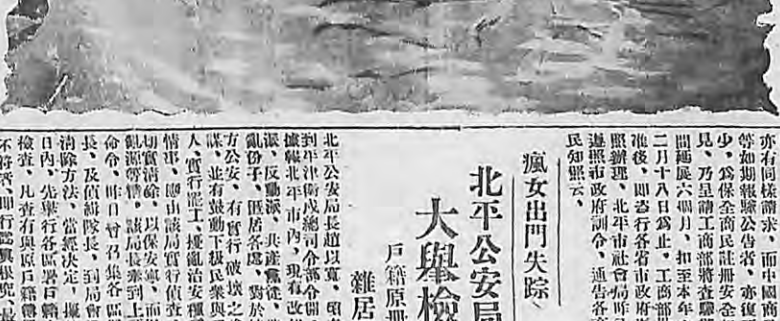 亦有同樣請求、而中國商
等如期報縣公告者、亦復
少、爲保全商民註冊安全
見、乃呈請工商部將查驗
間延展六個月、扣至本年
二月十八日爲止、工商部
准後、即咨行各省市政府
照辦理、北平市社會局昨
遵照市政府訓令、通告各
民知照云、
瘋女出門失踪
北平公安局
大舉檢
戶籍原冊
雜居
北平公安局長趙以寬、頃
到平津衛戍總司令部令開
據報北平市內、現有改
派、反動派、共產黨徒、
亂份子、匿居各處、對於
方公安、有實行破壞之
謀、並有鼓動下級民衆與
人、實行罷工、擾亂治安種
情事、即由該局實行偵查
切實清除、以保安寧、而
命令、昨日曾召集各區
長、及偵緝隊長、到局會
清除方法、當經決定、擬
日內、先舉行各區署戶籍
檢查、凡查有與原戶籍
不符者、即行